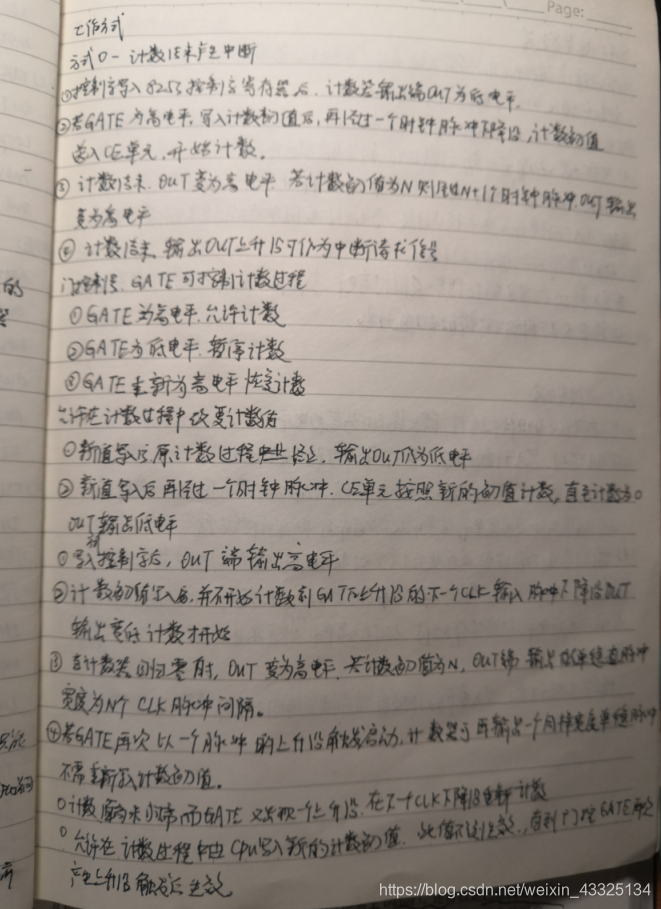 Page:
工作方式
方式0 - 计数结束产生中断
①控制字写入8253控制字寄存器后, 计数器输出端OUT为低电平.
②若GATE为高电平, 写入计数初值后, 再经过一个时钟脉冲下降沿, 计数初值
送入CE单元, 开始计数.
③ 计数结束. OUT变为高电平. 若计数初值为N 则经过N+1个时钟脉冲. OUT输出
变为高电平
④ 计数结束. 输出OUT上升沿可作为中断请求信号
门控信号. GATE可控制计数过程
①GATE为高电平. 允许计数
②GATE为低电平. 暂停计数
③GATE重新为高电平 恢复计数
允许在计数过程中改变计数值
①新值写入后 原计数过程 输出OUT仍为低电平
② 新值写入后 再经过一个时钟脉冲. CE单元按照新的初值计数, 直至计数为0
OUT输出低电平
①写入控制字后, OUT端输出高电平
②计数初值写入后, 并不开始计数 到GATE上升沿的下一个CLK输入脉冲下降沿OUT
输出变低 计数才开始
③ 当计数器回归零时, OUT变为高电平. 若计数初值为N, OUT端输出低单稳负脉冲
宽度为N个CLK脉冲间隔.
④若GATE再次以一个脉冲的上升沿触发启动, 计数器可再输出一个同样宽度单稳脉冲
不需重新装计数初值.
计数 而GATE又出现一个上升沿. 在下一个CLK下降沿重新计数
允许在计数过程中由CPU写入新的计数初值. 此值不 生效, 直到门控GATE
产生上升沿触发后生效
的
https://blog.csdn.net/weixin_43325134